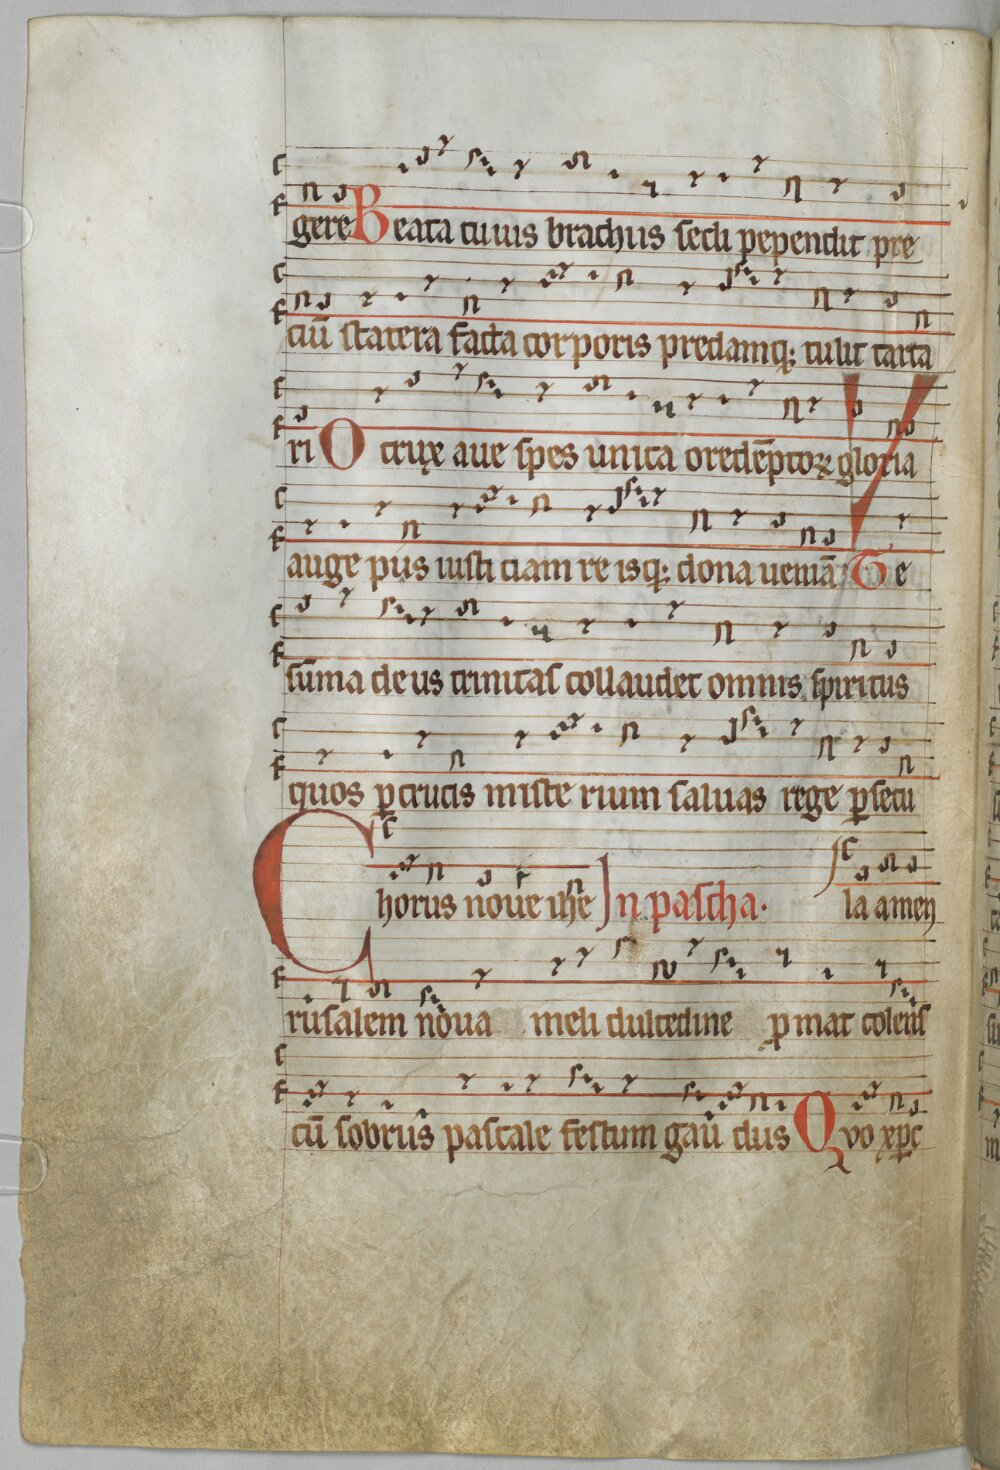 gere Beata cuius brachiis secli pependit pre
ciū statera facta corporis predamq; tulit tarta
ri O crux aue spes unica o redēptoꝝ gloria
auge piis iusticiam reisq; dona ueniā. Te
sūma deus trinitas collaudet omnis spiritus
quos ꝑ crucis misterium saluas rege ꝑ secu
Chorus noue ihe In pascha. la amen
rusalem noua meli dulcedine ꝓmat colens
cū sobriis pascale festum gaudiis Quo xp̄c